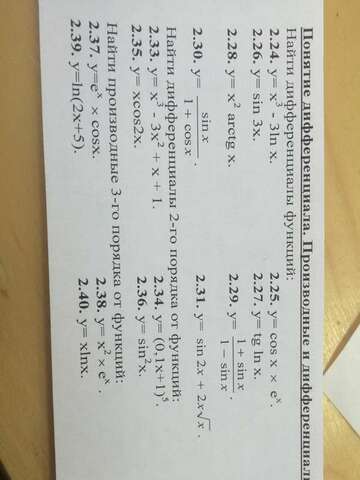 Понятие дифференциала. Производные и дифференциал
Найти дифференциалы функций:
2.24. y= x³ - 3ln x. 2.25. y= cos x × eˣ.
2.26. y= sin 3x. 2.27. y= tg ln x.
2.28. y= x² arctg x. 2.29. y= (1 + sin x)/(1 − sin x).
2.30. y= sin x/(1 + cos x). 2.31. y= sin 2x + 2x√x.
Найти дифференциалы 2-го порядка от функций:
2.33. y= x³ - 3x² + x + 1. 2.34. y= (0,1x+1)⁵.
2.35. y= xcos2x. 2.36. y= sin²x.
Найти производные 3-го порядка от функций:
2.37. y=eˣ × cosx. 2.38. y= x² × eˣ.
2.39. y=ln(2x+5). 2.40. y= xlnx.